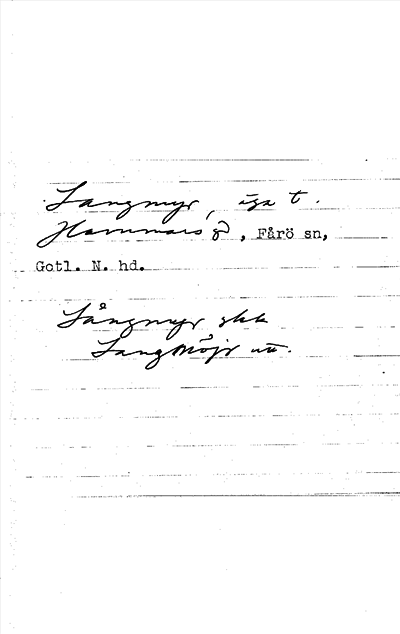 Langmyr, äga t.
Hammars 8, Fårö sn,
Gotl. N. hd.
Långmyr skk
Langmöjr utt.